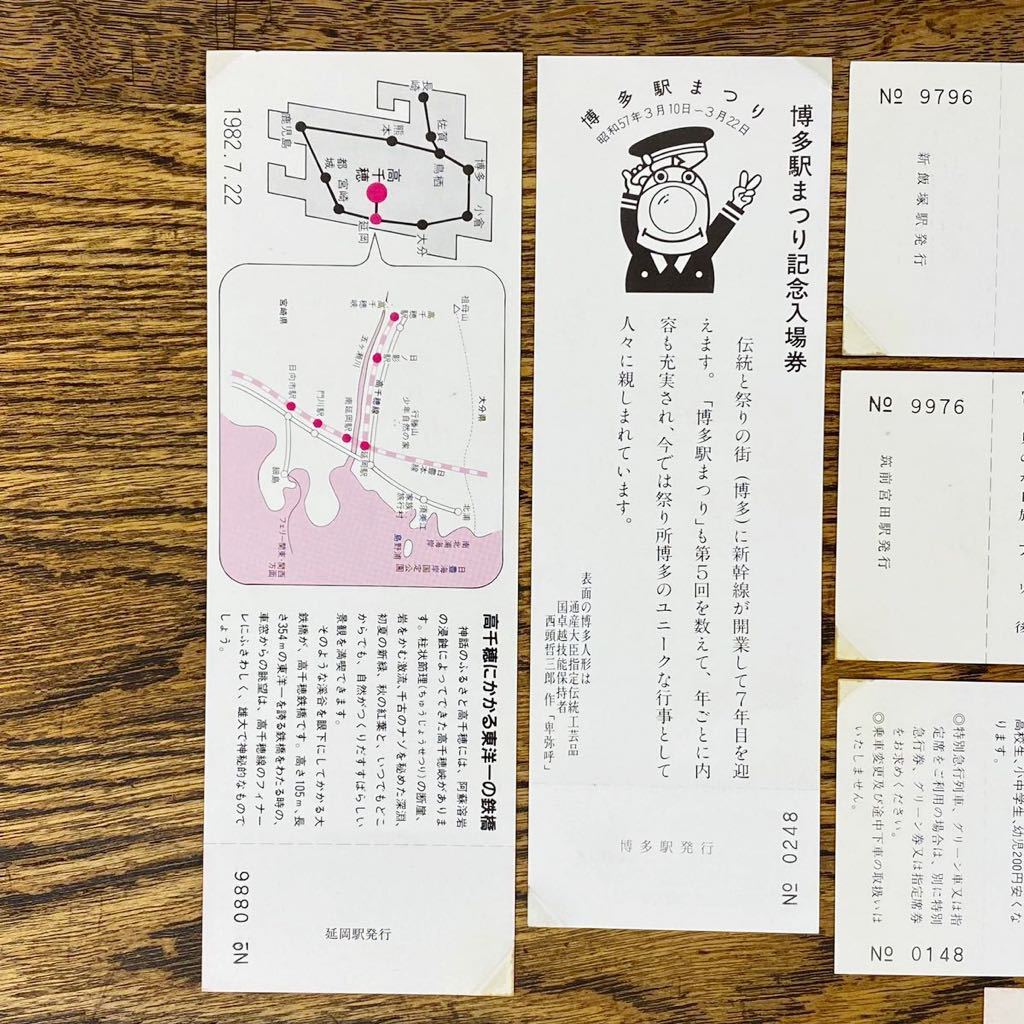 1982.7.22
長崎
佐賀
鳥栖
博多
小倉
熊本
鹿児島
都城
宮崎
高千穂
延岡
大分
祖母山
大分県
宮崎県
高千穂峡
高千穂駅
日ノ影駅
五ヶ瀬川
高千穂線
行縢山
少年自然の家
日向市駅
門川駅
南延岡駅
延岡駅
日豊本線
細島
須美江
家族
旅行村
北浦
島野浦
南北浦海岸
日豊海岸国定公園
フェリー関東関西
方面
高千穂にかかる東洋一の鉄橋
神話のふるさと高千穂には、阿蘇溶岩
の浸蝕によってできた高千穂峡がありま
す。柱状節理(ちゅうじょうせつり)の断崖、
岩をかむ激流、千古のナゾを秘めた深淵、
初夏の新緑、秋の紅葉と、いつでもどこ
からでも、自然がつくりだすすばらしい
景観を満喫できます。
そのような渓谷を眼下にしてかかる大
鉄橋が、高千穂鉄橋です。高さ105m、長
さ354mの東洋一を誇る鉄橋をわたる時の、
車窓からの眺望は、高千穂線のフィナー
レにふさわしく、雄大で神秘的なもので
しょう。
延岡駅発行
№ 0886
博多駅まつり記念入場券
博多駅まつり
昭和57年3月10日-3月22日
伝統と祭りの街(博多)に新幹線が開業して7年目を迎
えます。「博多駅まつり」も第5回を数えて、年ごとに内
容も充実され、今では祭り所博多のユニークな行事として
人々に親しまれています。
表面の博多人形は
通産大臣指定伝統工芸品
国卓越技能保持者
西頭哲三郎 作
博多駅発行
№ 0248
№ 9796
新飯塚駅発行
№ 9976
筑前宮田駅発行
高校生、小中学生、幼児200円安くな
ります。
◎特別急行列車、グリーン車又は指
定席をご利用の場合は、別に特別
急行券、グリーン券又は指定席券
をお求めください。
◎乗車変更及び途中下車の取扱いは
いたしません。
№ 0148